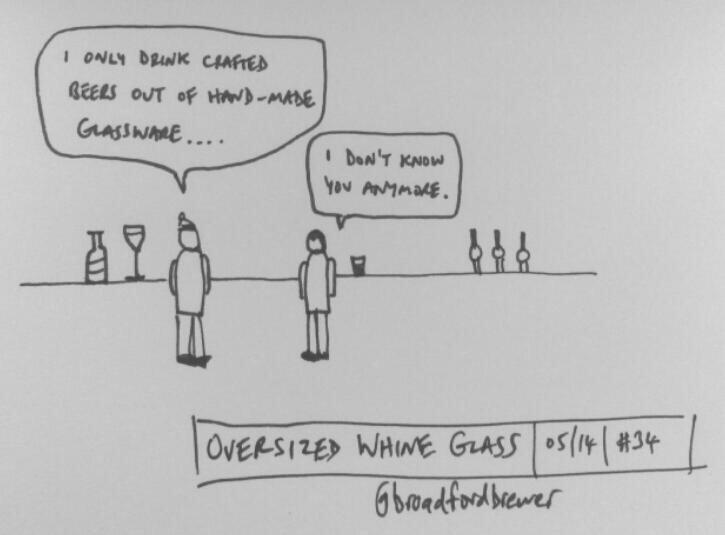 I ONLY DRINK CRAFTED
BEERS OUT OF HAND-MADE
GLASSWARE....
I DON'T KNOW
YOU ANYMORE.
OVERSIZED WHINE GLASS 05/14 #34
@broadfordbrewer